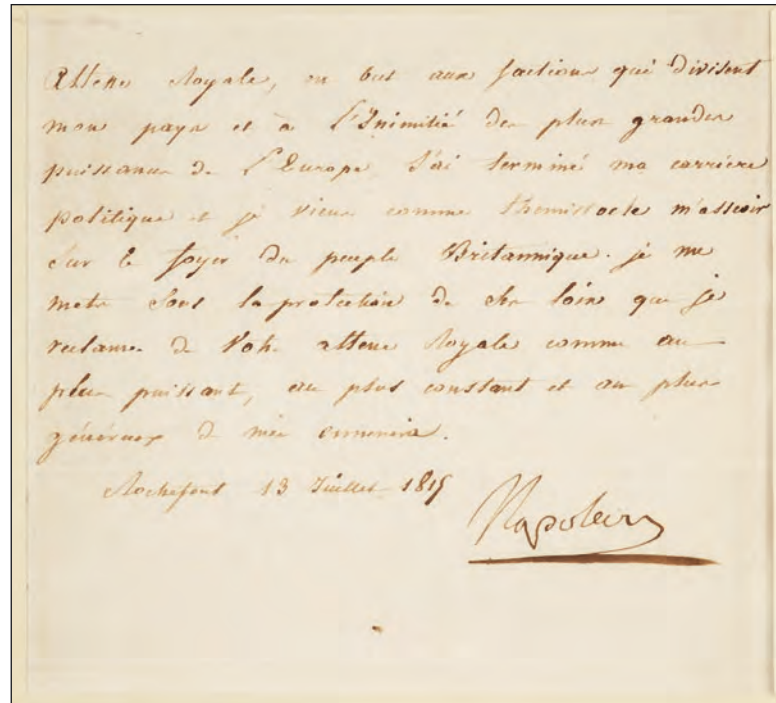 Altesse Royale, en but aux factions qui divisent
mon pays et à l'Inimitié des plus grandes
puissances de l'Europe j'ai terminé ma carrière
politique et je viens comme Themistocle m'asseoir
sur le foyer du peuple Britannique. je me
mets sous la protection de ses loix que je
reclame de Votre altesse Royale comme au
plus puissant, au plus constant et au plus
généreux de mes ennemis.
Rochefort 13 Juillet 1815
Napoleon